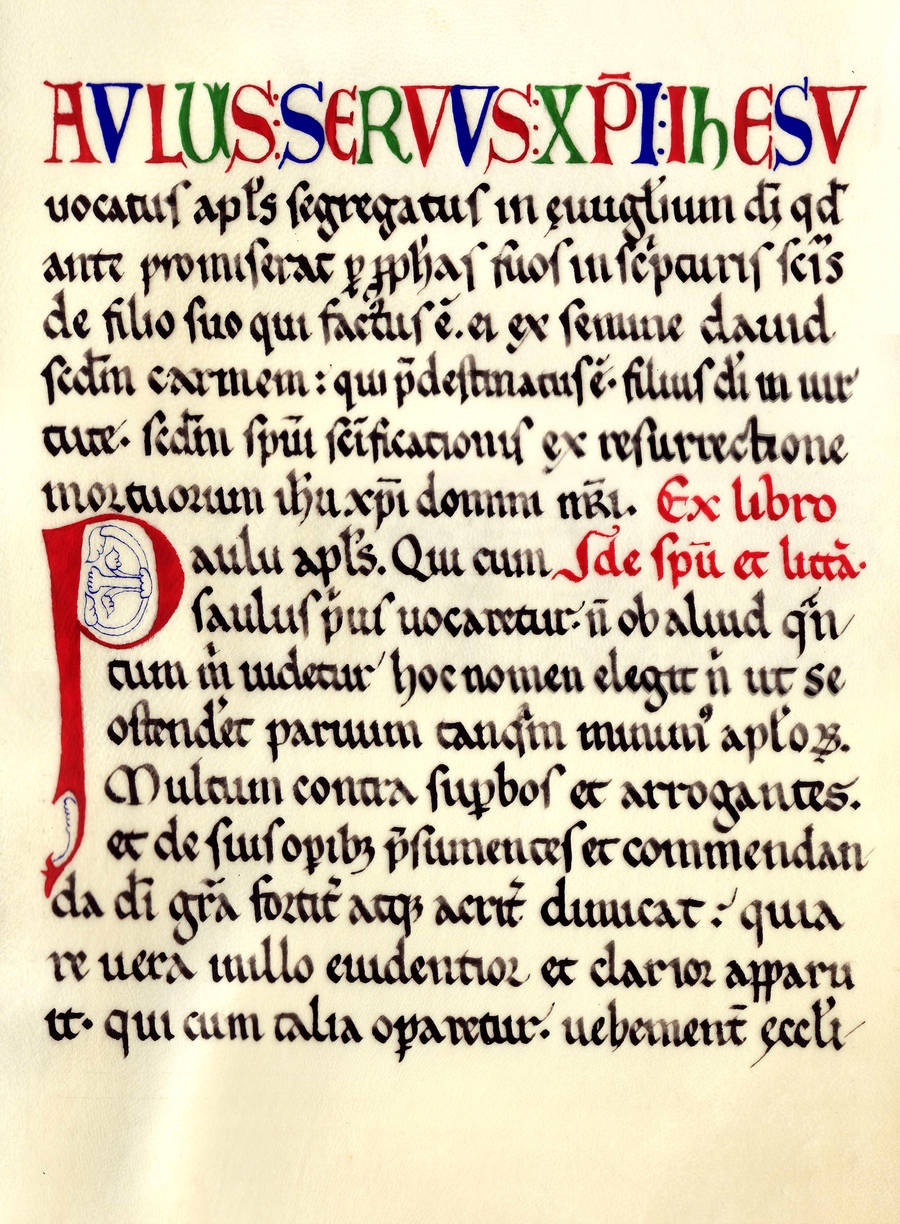 AVLUS:SERVVS:XP̄I:IhESV
uocatus apl̄s segregatus in ęuuglīum dī qd̄
ante promiserat ꝑ ꝓphās suos in scͥpturis scīs
de filio suo qui factus ē. ei ex semine dauid
scdm̄ carnem: qui p̄destinatus ē. filius dī in uir
tute. scdm̄ spm̄ scīficationis ex resurrectione
mortuorum ihū xp̄i domini nr̄i. Ex libro
Paulu apl̄s. Qui cum S de spū et littā.
saulus pͥus uocaretur. n̄ ob aliud qͣn
tum m̄ uidetur hoc nomen elegit n̄ ut se
ostender̄et paruum tanqͣm minimꝰ apl̄oꝝ.
Multum contra suꝑbos et arrogantes.
et de suis oꝑibꝫ p̄sumentes et commendan
da dī gr̄a fortit̄ atqꝫ acrit̄ dimicat: quia
re uera nullo euidentior et clarior apparu
it. qui cum talia oꝑaretur. uehement̄ ęccl̄i